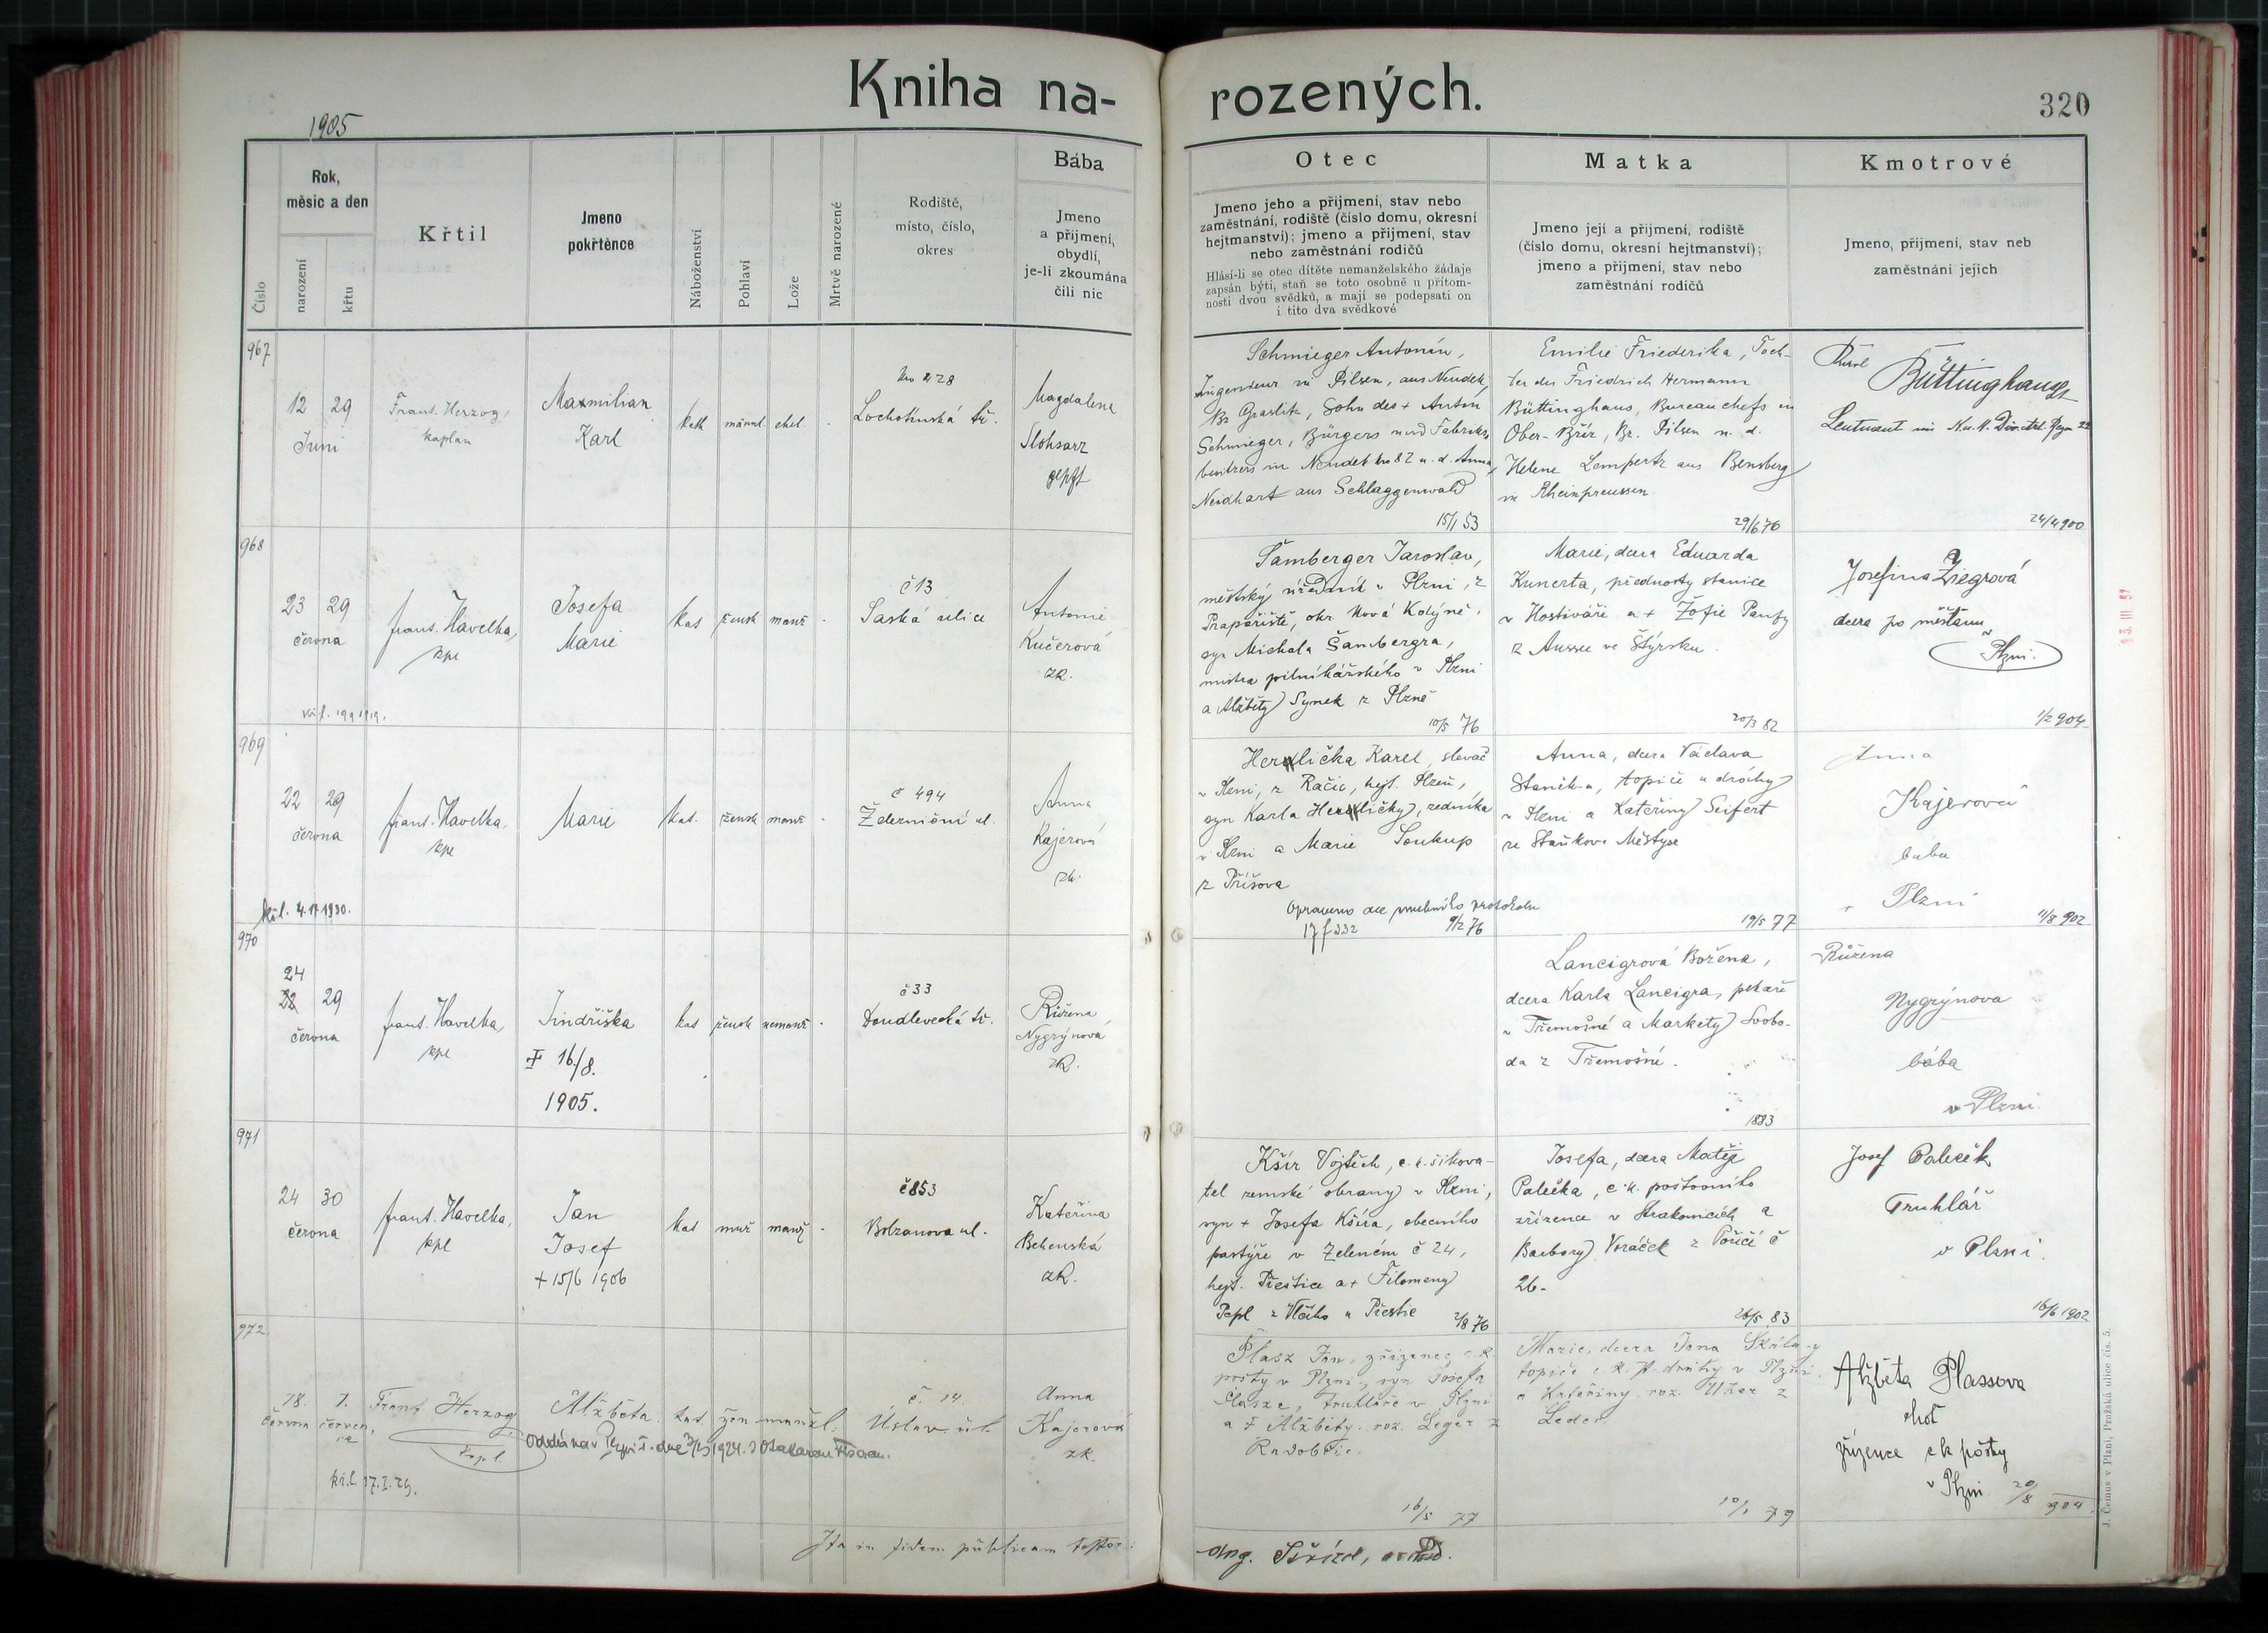 Kniha na-
rozených.
320
1905
Číslo
Rok,
měsíc a den
narození
křtu
Křtil
Jmeno
pokřtěnce
Náboženství
Pohlaví
Lože
Mrtvě narozené
Rodiště,
místo, číslo,
okres
Bába
Jmeno
a příjmení,
obydlí,
je-li zkoumána
čili nic
Otec
Jmeno jeho a příjmení, stav nebo
zaměstnání, rodiště (číslo domu, okresní
hejtmanství); jmeno a příjmení, stav
nebo zaměstnání rodičů
Hlásí-li se otec dítěte nemanželského žádaje
zapsán býti, staň se toto osobně u přítom-
nosti dvou svědků, a mají se podepsati on
i tito dva svědkové
Matka
Jmeno její a příjmení, rodiště
(číslo domu, okresní hejtmanství);
jmeno a příjmení, stav nebo
zaměstnání rodičů
Kmotrové
Jmeno, příjmení, stav neb
zaměstnání jejich
967
12 29
Juni
Frant. Herzog,
kaplan
Maxmilian
Karl
kath
männl.
ehel
No 428
Lochotínská tř.
Magdalena
gepft
Schmieger Antonín,
Ingenieur in Pilsen, aus Neudek,
Bz Graslitz, Sohn des + Anton
Schmieger, Bürgers und Fabriks
besitzers in Neudek No 82 u. d. Anna
Neidhart aus Schlaggenwald
15/1 53
Emilie Friederika, Toch-
ter des Friedrich Hermann
Büttinghaus, Bureauchefs in
Ober-Bříz, Bz. Pilsen u. d.
Helene Lempertz aus Bensberg
in Rheinpreussen.
29/6 76
Karl
Büttinghaus
Leutnant im
24/4 900
968
23 29
června
frant. Havelka,
kpl
Josefa
Marie
kat
žensk
manž
č 13
Saská ulice
Antonie
Kučerová
zk.
Šamberger Jaroslav,
městský úředník v Plzni, z
Prapořiště, okr. Nová Kdýně,
syn Michala Šambergra,
mistra pilníkářského v Plzni
a Alžběty Synek z Plzně
10/5 76
Marie, dcera Eduarda
Kunerta, přednosty stanice
v Hostiváři a + Žofie Panfy
z Aussee ve Štýrsku.
20/3 82
Josefina Žiegrová
dcera po měšťanu
v Plzni.
1/2 904
969
22 29
června
frant. Havelka,
kpl
Marie
kat.
žensk
manž
č 494
Železniční ul.
Anna
Kajerová
zk.
křl. 4.IV.1930.
Herlička Karel, slevač
v Plzni, z Račic, hejt. Plzeň,
syn Karla Herličky, zedníka
v Plzni a Marie Soukup
z Příšova
Opraveno dle protokolu
17 f 332
9/12 76
Anna, dcera Václava
Staňka, topiče u dráhy
v Plzni a Kateřiny Seifert
ze Staňkova Městyse
19/5 77
Anna
Kajerová
bába
v Plzni
11/8 902
970
24
22 29
června
frant. Havelka,
kpl
Jindřiška
16/8.
1905.
kat
žensk
nemanž
č 33
Doudlevecká tř.
Růžena
Nygrýnová
zk.
Lancigrová Božena,
dcera Karla Lancigra, pekaře
v Třemošné a Markety Svobo-
da z Třemošné.
1883
Růžena
Nygrýnova
bába
v Plzni
971
24 30
června
frant. Havelka,
kpl
Jan
Josef
+ 15/6 1906
kat
muž
manž
č 853
Bolzanova ul.
Kateřina
Behenská
zk.
Kšír Vojtěch, c.k. šikova-
tel zemské obrany v Plzni,
syn + Josefa Kšíra, obecního
pastýře v Zeleném č 24,
hejt. Přeštice a + Filomeny
Pepl z Vlčího u Přeštic
2/8 76
Josefa, dcera Matěje
Palečka, c.k. poštovního
zřízence v Strakonicích a
Barbory Voráček z Poříčí č
26.
26/5 83
Josef Paleček
Truhlář
v Plzni.
16/6 1902
972
18. 1.
června července
Frant. Herzog
kapl.
Alžběta.
kat.
žen
manžel.
č. 14.
Úslav. ul.
Anna
Kajerová
zk.
křl. 17.I.29.
Plasz Jan, zřízenec c.k.
pošty v Plzni, syn Josefa
Plasze, truhláře v Plzni
a + Alžběty roz. Leger z
Radobčic.
16/5 77
Marie, dcera Jana Škály
topiče c.k. st. dráhy v Plzni
a Kateřiny roz. z
Ledec.
10/1 79
Alžběta Plassova
choť
zřízence c k pošty
v Plzni
20/8 904
Ita in fidem publicam testor:
J. Čemus v Plzni, Pražská ulice čís. 5.